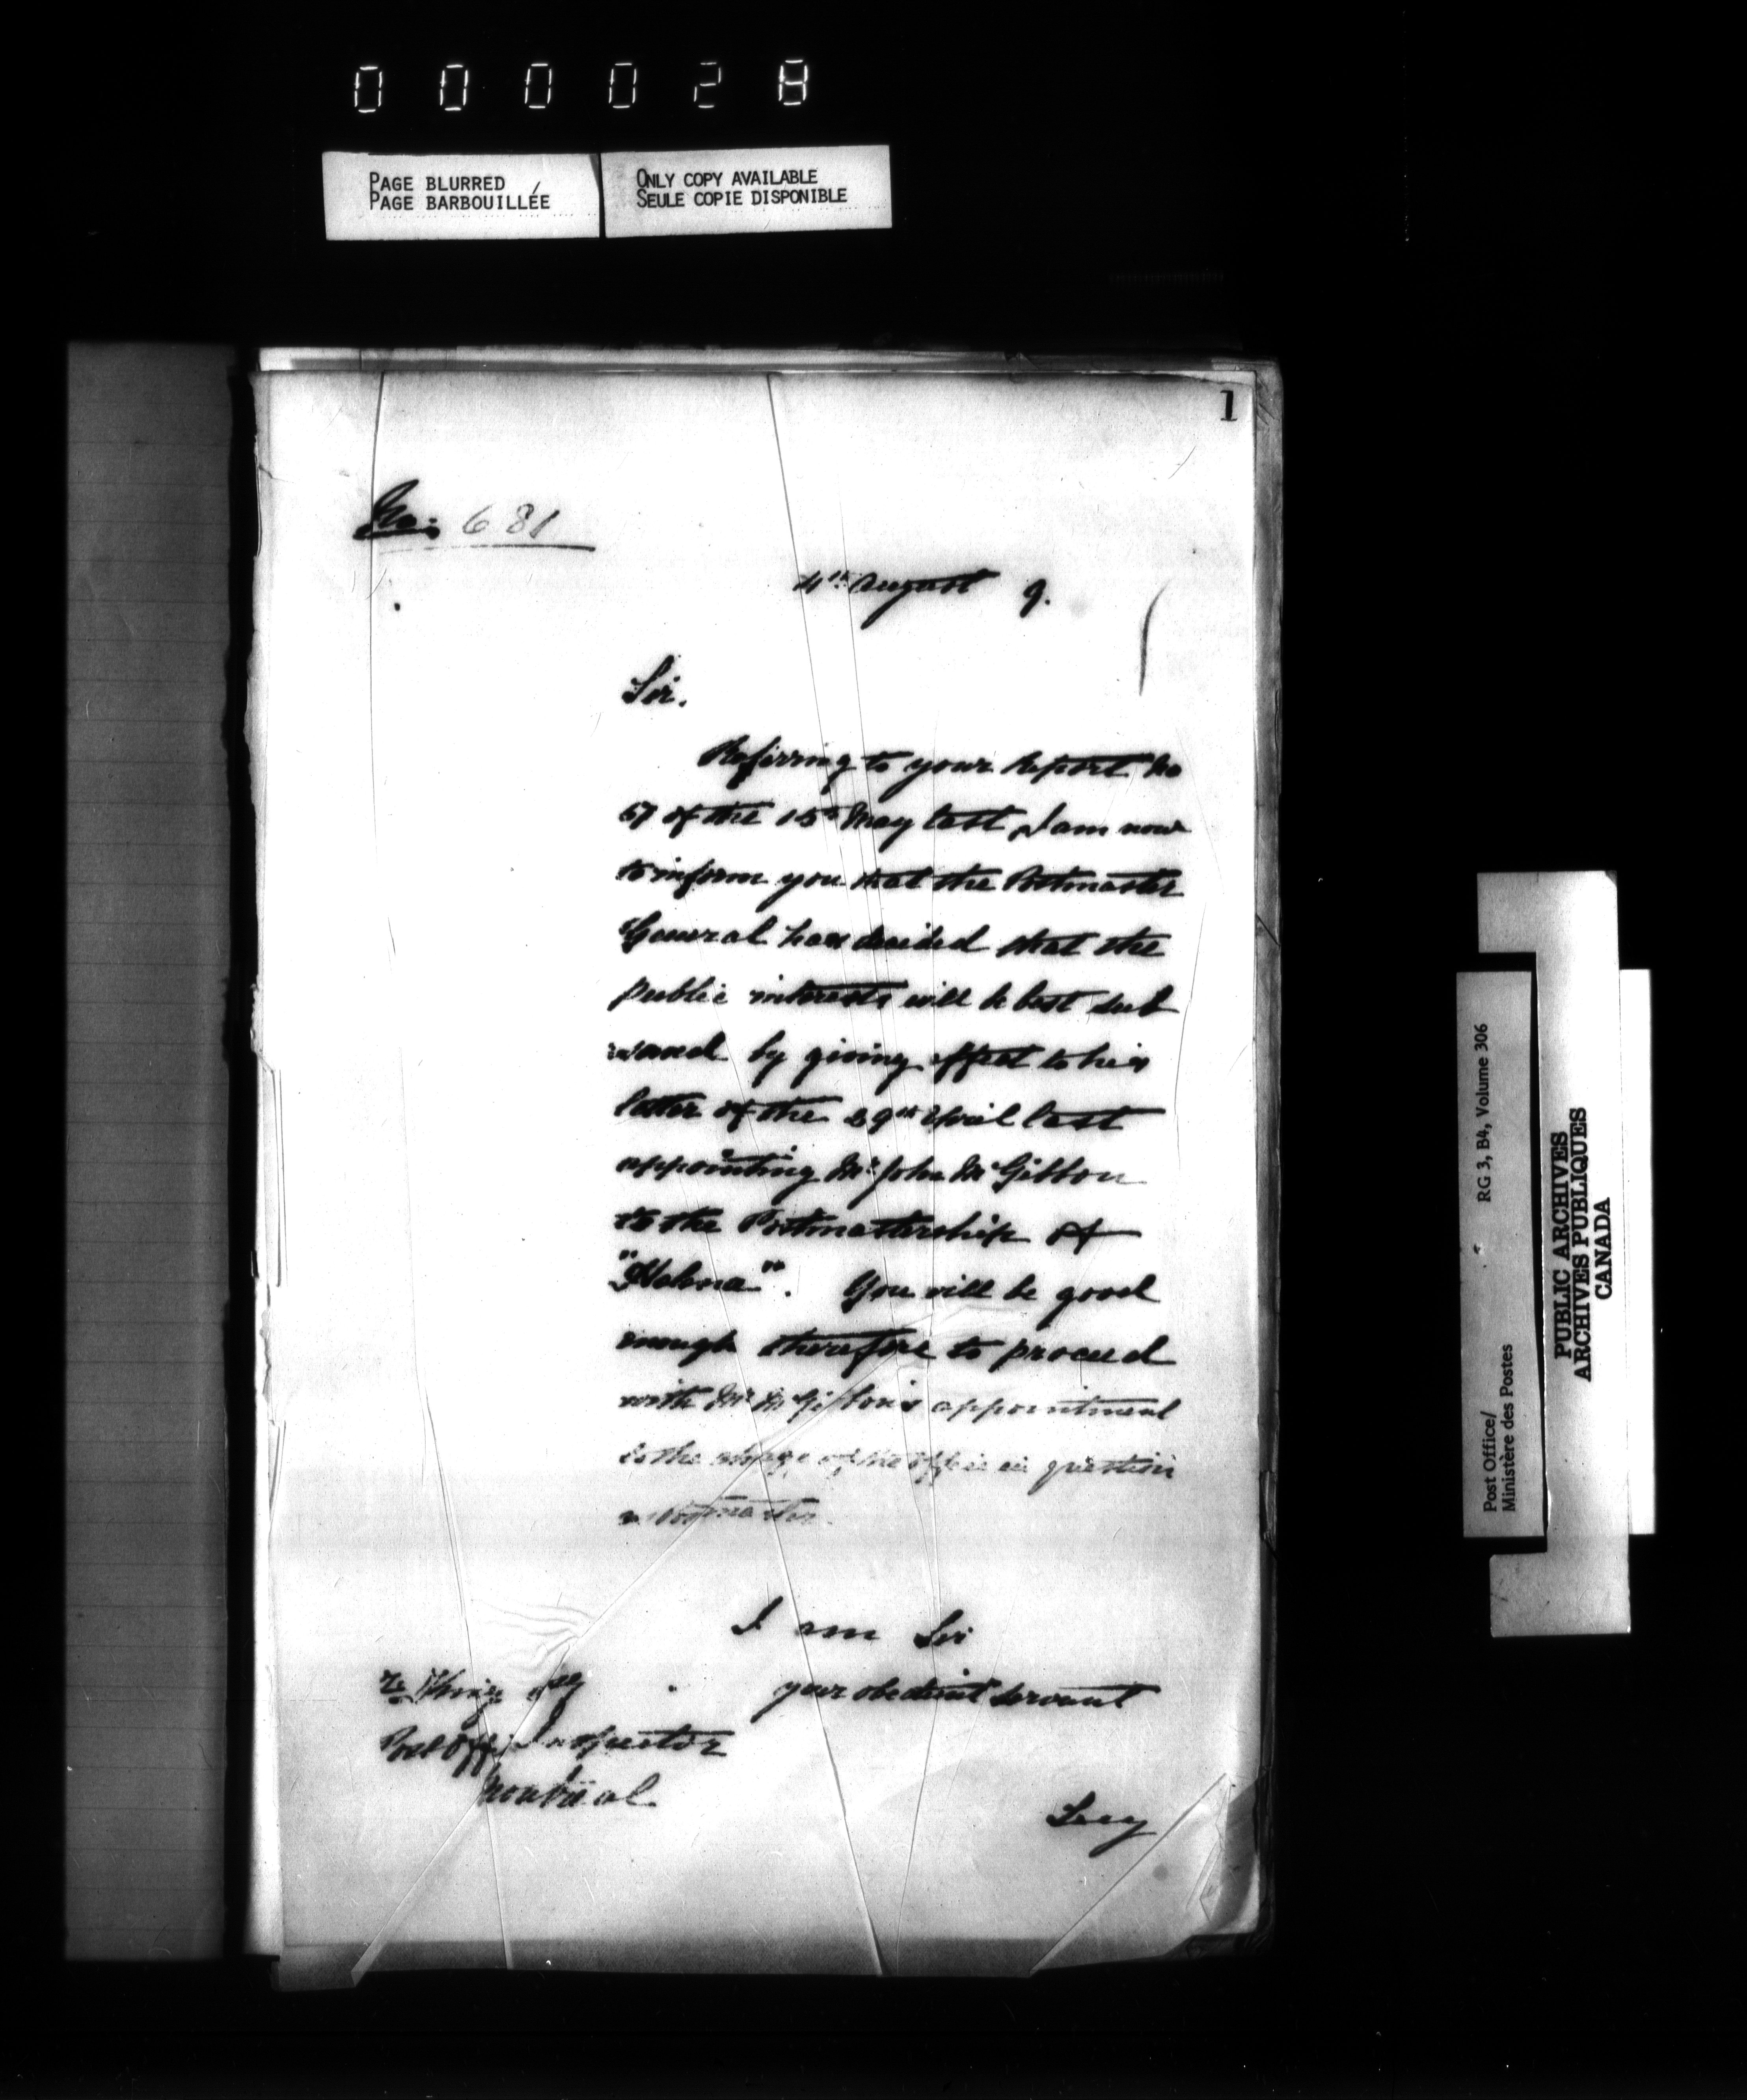 000028
PAGE BLURRED
PAGE BARBOUILLÉE
ONLY COPY AVAILABLE
SEULE COPIE DISPONIBLE
1
No. 681
4th August 9.
Sir.
Referring to your Report No
57 of the 15th May last, I am now
to inform you that the Postmaster
General has decided that the
public interests will be best sub
served by giving effect to his
letter of the 29th April last
appointing Mr John McGibbon
to the Postmastership of
You will be good
enough therefore to proceed
with Mr McGibbon's appointment
to the charge of the Office in question
as Postmaster.
I am Sir
your obedient servant
Post Office Inspector
Montreal
Secy
Post Office/
Ministère des Postes
RG 3, B4, Volume 306
PUBLIC ARCHIVES
ARCHIVES PUBLIQUES
CANADA